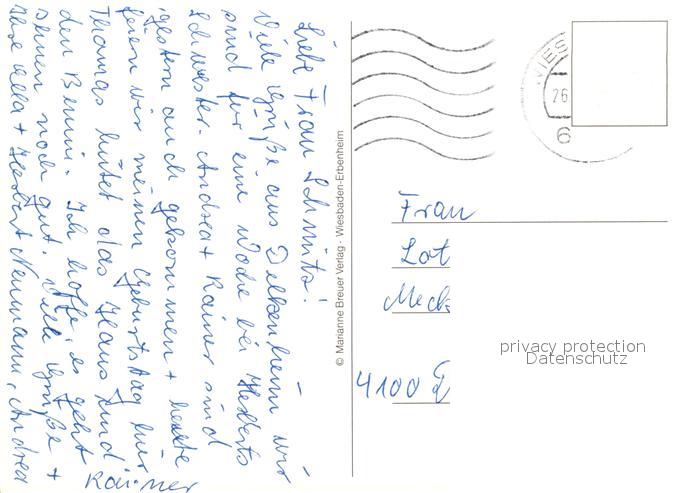 Liebe Frau Schmitz!
Viele Grüße aus Delkenheim wir
sind für eine Woche bei Herberts
Schwester. Andrea + Rainer sind
gestern auch gekommen + heute
feiern wir meinen Geburtstag hier
Thomas hütet das Haus und
den Benni. Ich hoffe, es geht
Ihnen noch gut. Viele Grüße +
Herbert Neumann, Andrea
Rainer
© Marianne Breuer Verlag · Wiesbaden-Erbenheim
WIES
26
6
Frau
Lot
Meck
4100 D
privacy protection
Datenschutz